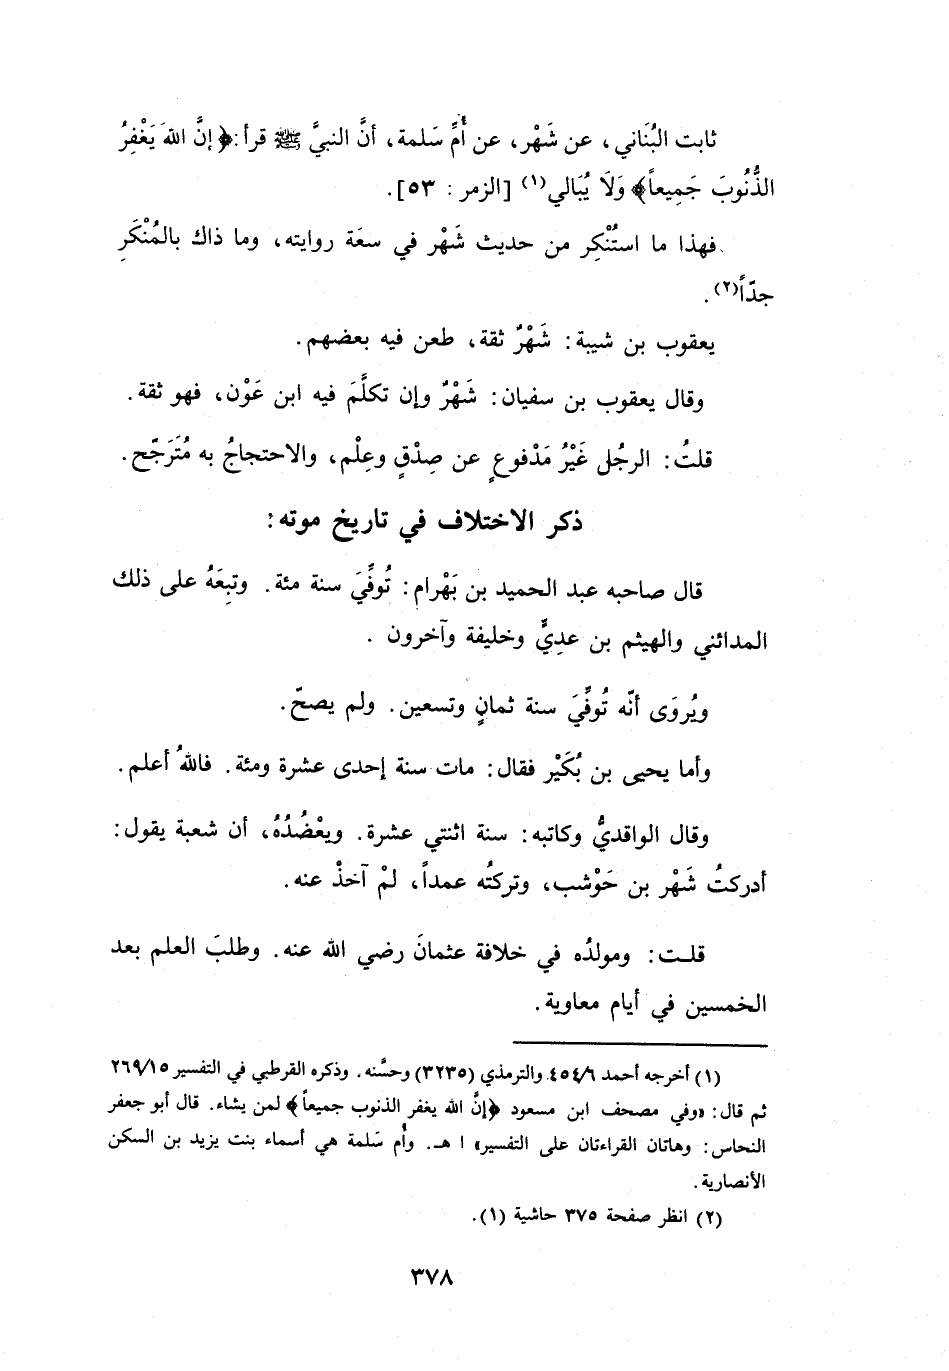 ثابت البُنَاني، عن شَهْر، عن أُمِّ سَلمة، أنَّ النبيَّ ﷺ قرأ: ﴿إنَّ اللهَ يَغْفِرُ
الذُّنُوبَ جَمِيعاً﴾ وَلَا يُبَالي(١) [الزمر : ٥٣].
فهذا ما استُنْكِر من حديث شَهْر في سعَة روايته، وما ذاك بالمُنْكَرِ
جدّاً(٢).
يعقوب بن شيبة: شَهْرٌ ثقة، طعن فيه بعضهم.
وقال يعقوب بن سفيان: شَهْرٌ وإن تكلَّمَ فيه ابن عَوْن، فهو ثقة.
قلتُ: الرجُل غَيْرُ مَدْفوعٍ عن صِدْقٍ وعِلْم، والاحتجاجُ به مُتَرَجّح.
ذكر الاختلاف في تاريخ موته:
قال صاحبه عبد الحميد بن بَهْرام: تُوفِّيَ سنة مئة. وتبِعَهُ على ذلك
المدائني والهيثم بن عديٍّ وخليفة وآخرون .
ويُروَى أنّه تُوفِّيَ سنة ثمانٍ وتسعين. ولم يصحّ.
وأما يحيى بن بُكَيْر فقال: مات سنة إحدى عشرة ومئة. فاللهُ أعلم.
وقال الواقديُّ وكاتبه: سنة اثنتي عشرة. ويعْضُدُهُ، أن شعبة يقول:
أدركتُ شَهْر بن حَوْشب، وتركتُه عمداً، لمْ آخذْ عنه.
قلت: ومولدُه في خلافة عثمانَ رضي الله عنه. وطلبَ العلم بعد
الخمسين في أيام معاوية.
(١) أخرجه أحمد ٤٥٤/٦ والترمذي (٣٢٣٥) وحسَّنه. وذكره القرطبي في التفسير ٢٦٩/١٥
ثم قال: «وفي مصحف ابن مسعود ﴿إنَّ الله يغفر الذنوب جميعاً﴾ لمن يشاء. قال أبو جعفر
النحاس: وهاتان القراءتان على التفسير» ا هـ. وأم سَلمة هي أسماء بنت يزيد بن السكن
الأنصارية.
(٢) انظر صفحة ٣٧٥ حاشية (١).
٣٧٨